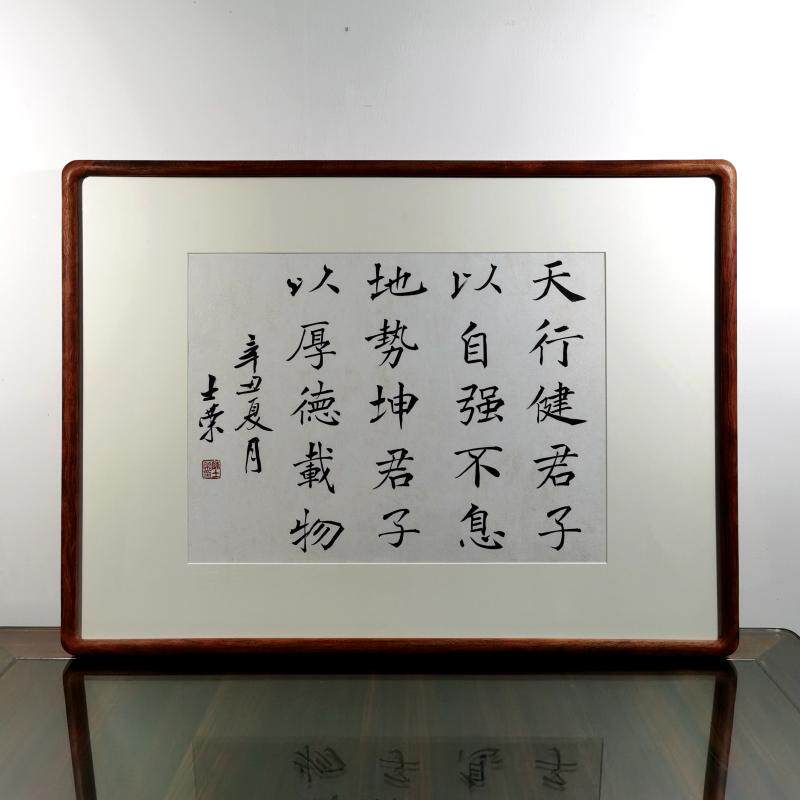 天行健君子
以自强不息
地势坤君子
以厚德載物
辛丑夏月
士荣